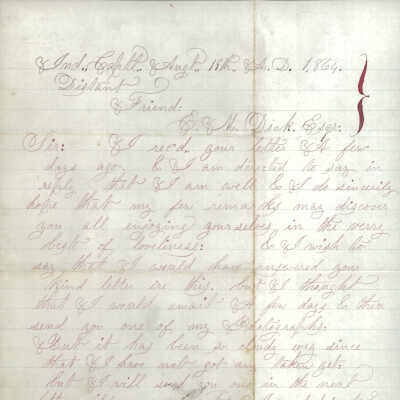 Ind. Capitl. Augt. 18th. A.D. 1864.
Distant
Friend.
E. M. Dick Esqr.
Sir: I recd. your letter A few
days ago. & I am directed to say in
reply that I am well & I do sincerely
hope that my few remarks may discover
you all enjoying yourselves in the verry
best of lonliness: & I wish to
say that I would have answered your
kind letter ere this, but I thought
that I would wait A few days & then
send you one of my Photographs.
But it has been so cloudy ever since
that I have not got any taken yet.
but I will send you one in the next